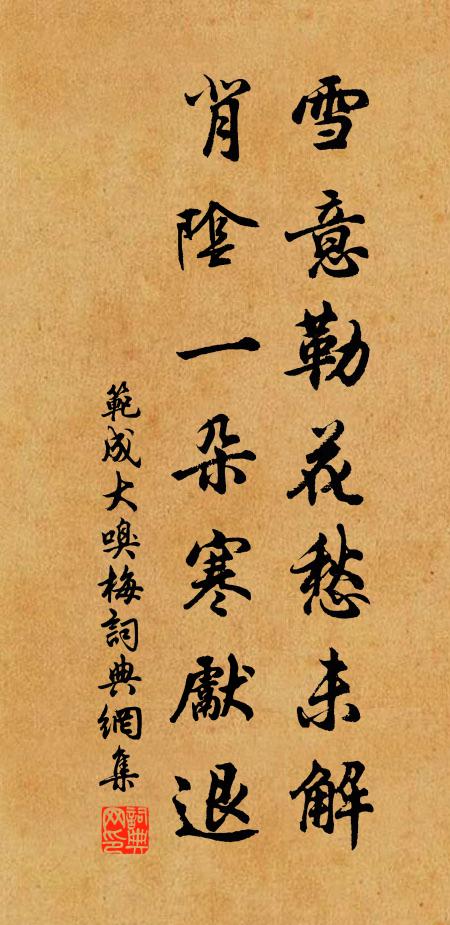 雪意勒花愁未解
背陰一朵寒獻退
範成大嗅梅詞典網集
詞典网印